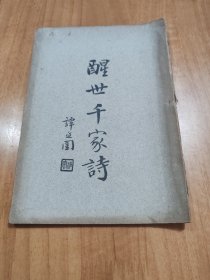 醒世千家詩
譚延闓